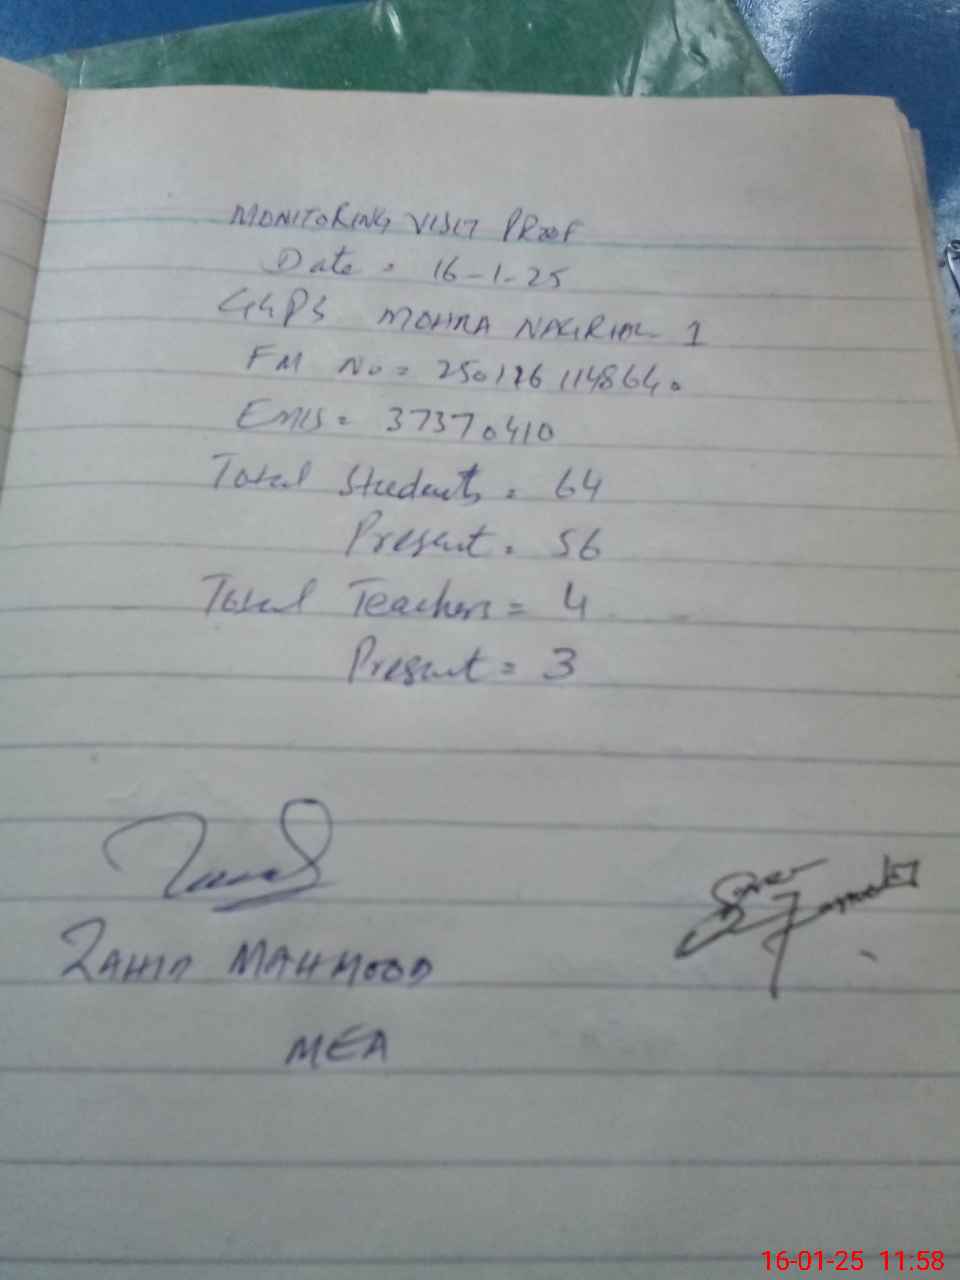 MONITORING VISIT PROOF
Date = 16-1-25
GGPS MOHRA NAGRIAL 1
FM No = 250116114864.
EMIS = 37370410
Total Students = 64
Present = 56
Total Teachers = 4
Present = 3
ZAHID MAHMOOD
MEA
16-01-25 11:58